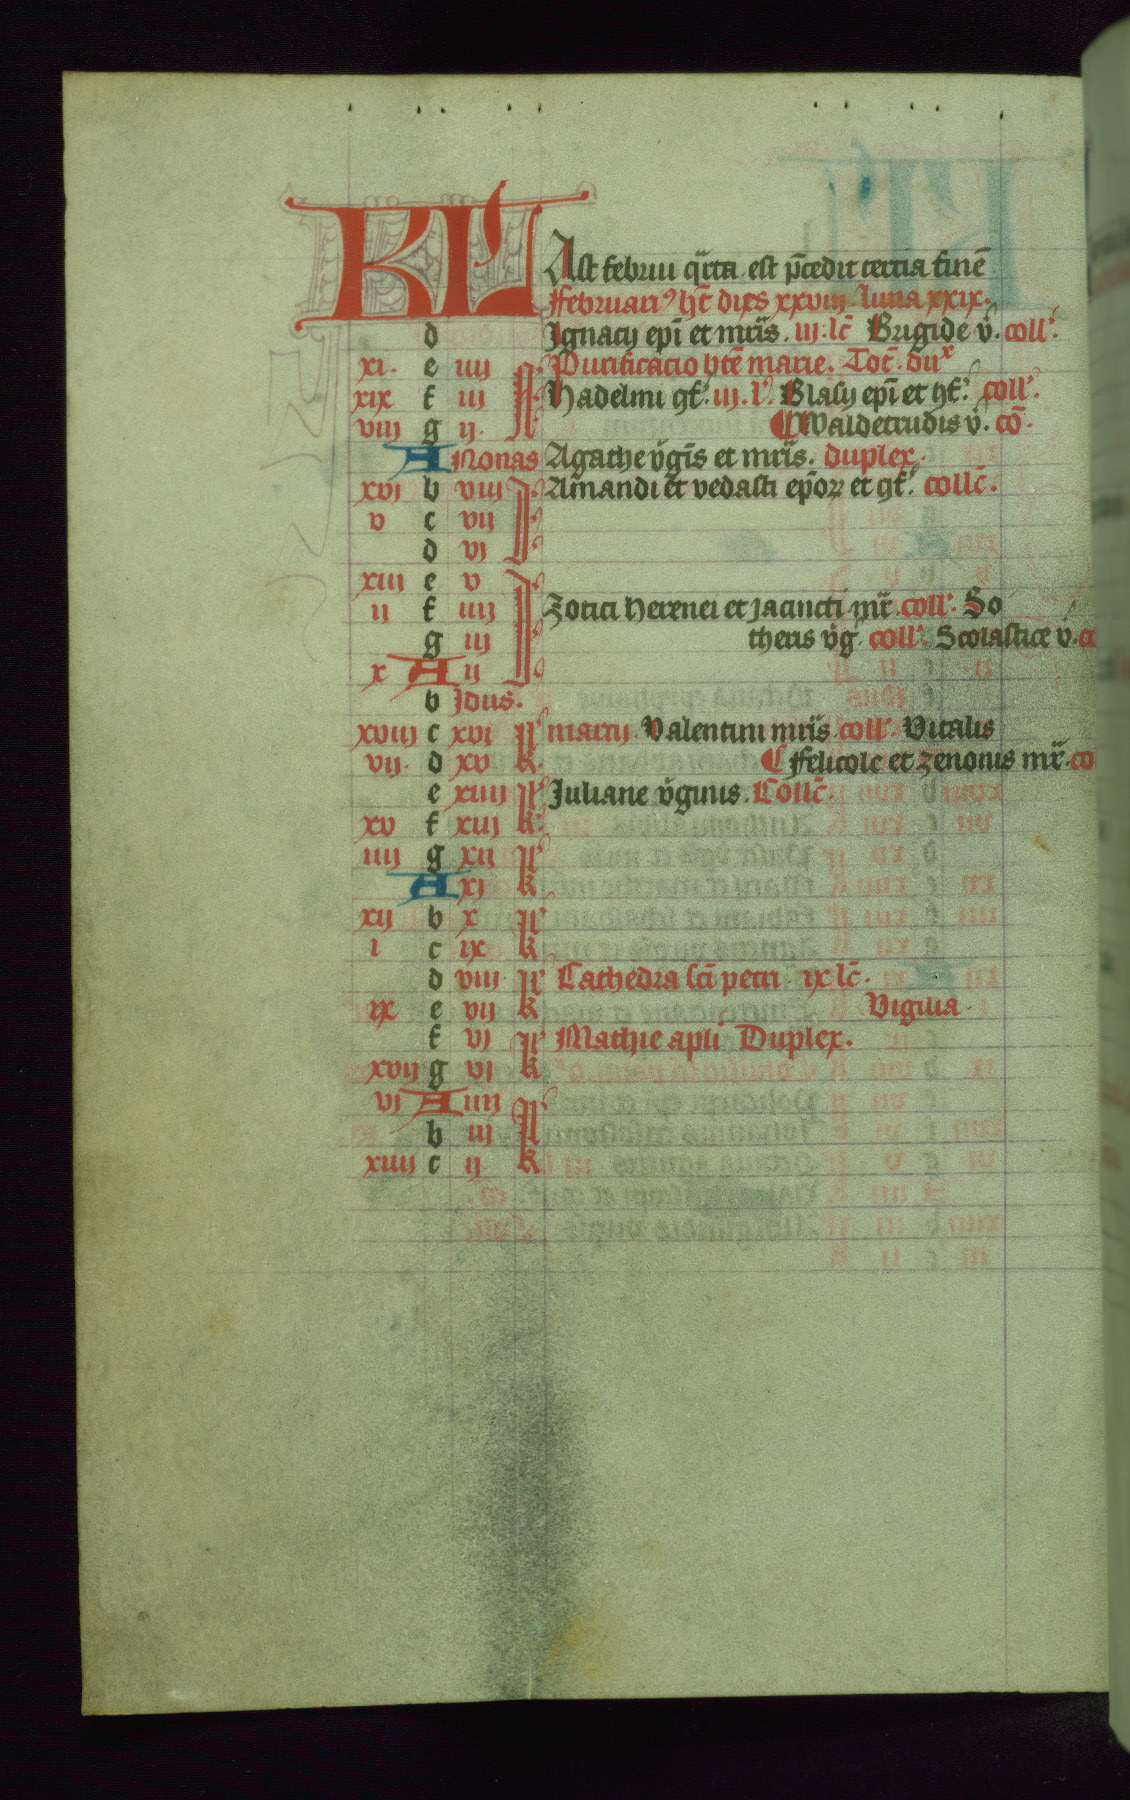 KL Ast februi q̃rta est p̃cedit tercia finē
Februariꝰ hĉt dies xxviij luna xxix.
d Ignacij ep̄i et mr̃is. iij. lc̄ Brigide v̄. coll'.
xi. e iiij N Purificacio bt̄e marie. Tot̄. dux
xix f iij Hadelini ꝯf'. iij. l'. Blasij ep̄i et ꝯf'. coll'.
viij g ij. Waldetrudis v̄. co̅.
A Nonas Agathe v̄gīs et mr̃is. duplex.
xvj b viij J Amandi et vedasti ep̄oꝝ et ꝯf'. collc̄.
v c vij
d vj
xiij e v J
ij f iiij Zotici herenei et Jacincti mr̃. coll'. So
g iij theris v̄g. coll'. Scolastice v̄. co
x A ij
b Jdus.
xviij c xvj marcij. Valentini mr̃is coll'. Vitalis
vij. d xv k. Felicole et zenonis mr̃. co
e xiiij Juliane v̄ginis. Collc̄.
xv f xiij k.
iiij g xij
A xj k
xij b x
i c ix k
d viij Cathedra sc̄i petri ix lc̄.
ix e vij k Vigilia.
f vj Mathie apl̄i Duplex.
xvij g vj k
vj A iiij
b iij
xiiij c ij k